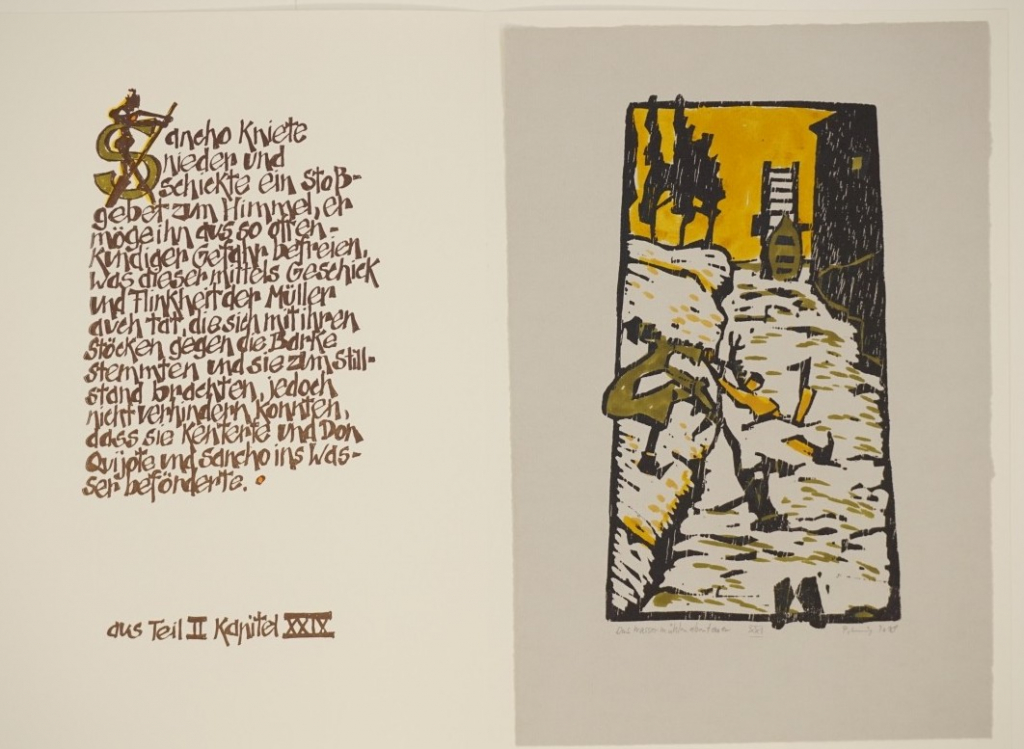 Sancho kniete
nieder und
schickte ein Stoß-
gebet zum Himmel, er
möge ihn aus so offen-
kundiger Gefahr befreien,
was dieser mittels Geschick
und Flinkheit der Müller
auch tat, die sich mit ihren
Stöcken gegen die Barke
stemmten und sie zum Still-
stand brachten, jedoch
nicht verhindern konnten,
dass sie kenterte und Don
Quijote und Sancho ins Was-
ser beförderte.
aus Teil II Kapitel XXIX
Das